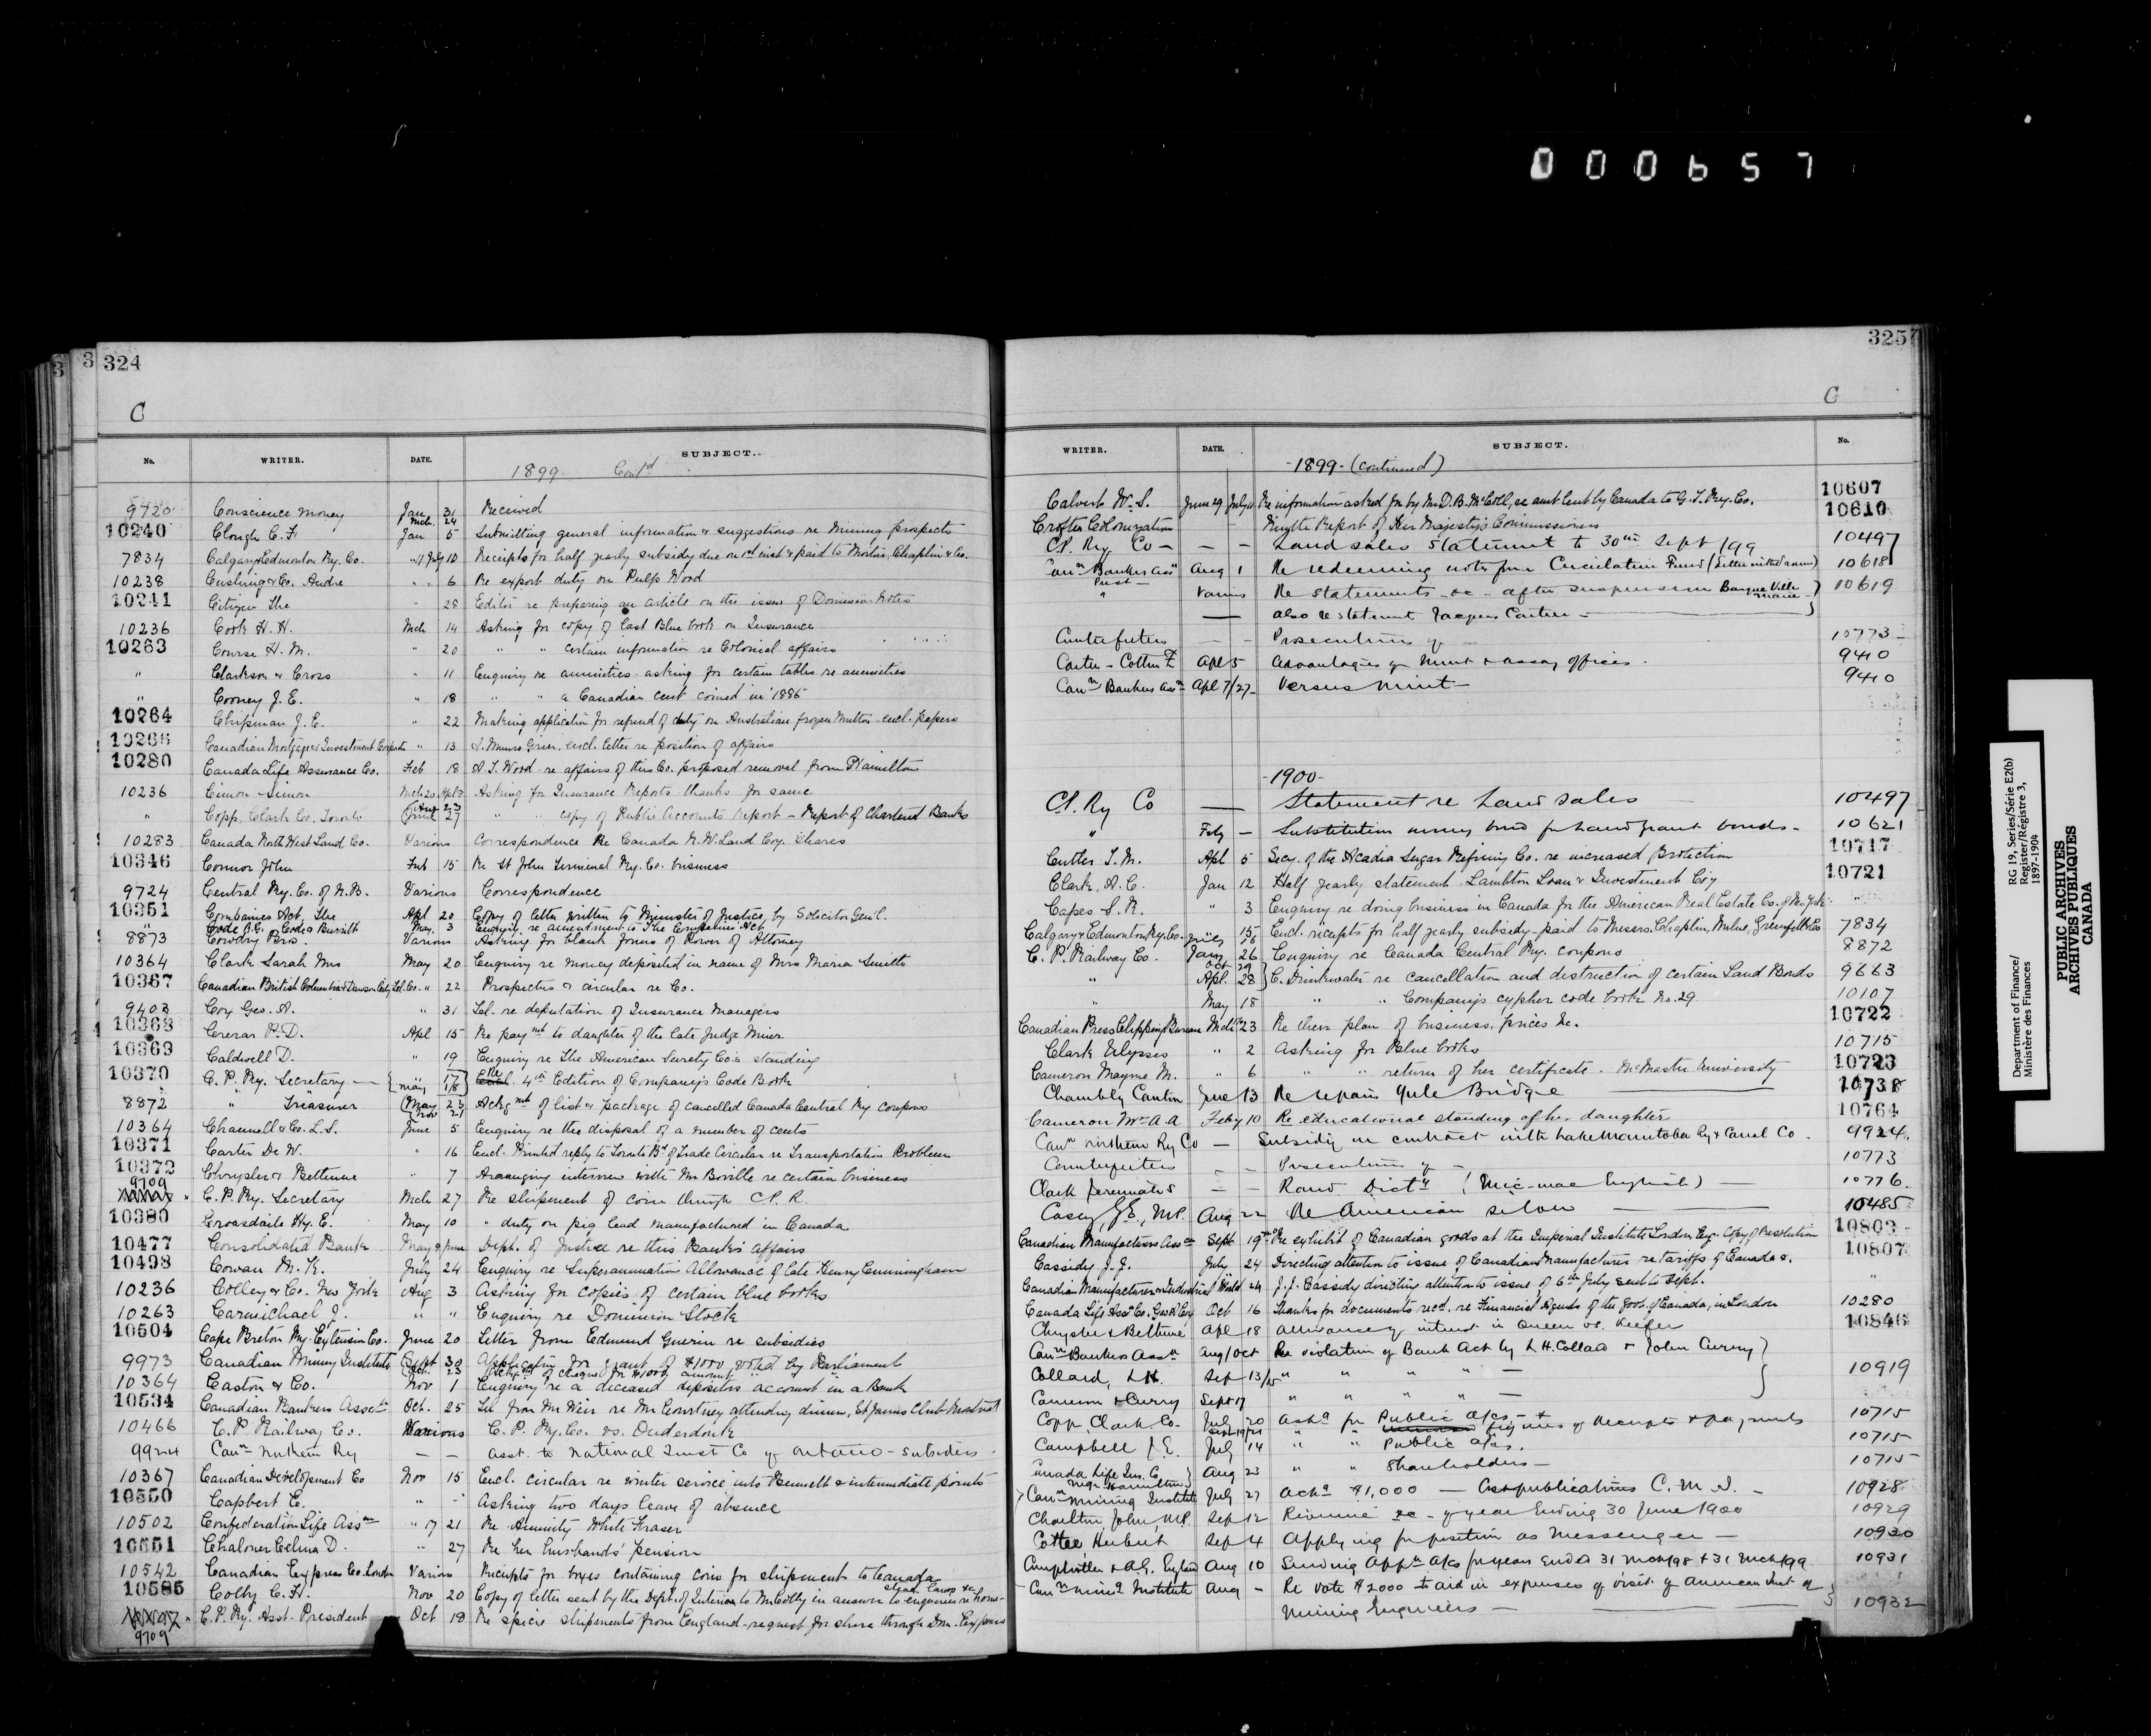 000657
324
C
No. WRITER. DATE. SUBJECT.
1899 Cont'd
9720 Conscience Money Jan 31 Received
Mch 24
10240 Clough C. F. Jan 5 Submitting general information & suggestions re Mining prospects
7834 Calgary & Edmonton Ry. Co. 10 Receipts for half yearly subsidy due on 1st inst & paid to Morton, Chaplin & Co.
10238 Cushing & Co. Andre " 6 Re export duty on Pulp Wood
10241 Citizen The " 28 Editor re preparing an article on the issue of Dominion Notes
10236 Cook H. H. Mch 14 Asking for copy of last Blue book on Insurance
10263 Course H. M. " 20 " " certain information re Colonial affairs
" Clarkson & Cross " 11 Enquiry re annuities - asking for certain tables re annuities
" Cooney J. E. " 18 " " a Canadian cent coined in 1885
10264 Chipman J. E. " 22 Making application for refund of duty on Australian frozen Mutton - encl. papers
10266 Canadian Mortgage & Investment " 13 encl. letter re position of affairs
10280 Canada Life Assurance Co. Feb 18 A. T. Wood - re affairs of this Co. proposed removal from Hamilton
10236 Cimon Simon Mch 20 Apl 3 Asking for Insurance Reports thanks for same
" Copp, Clark Co. Toronto June 27 " " copy of Public Accounts Report - Report of Chartered Banks
10283 Canada North West Land Co. Various Correspondence Re Canada N. W. Land Coy. Shares
10346 Connor John Feb 15 Re St John Terminal Ry. Co. business
9724 Central Ry. Co. of N. B. Various Correspondence
10351 Companies Act, The Apl 20 Copy of letter written to Minister of Justice, by Solicitor Genl.
" Code R. G. Code & Burritt May 3 Enquiry re amendment to The Companies Act
8873 Cowdry Bros. Various Asking for blank forms of Power of Attorney
10364 Clark Sarah Mrs May 20 Enquiry re money deposited in name of Mrs Maria Smith
10367 Canadian British Columbia & Dawson City Tel. Co. " 22 Prospectus & circular re Co.
9403 Cox Geo. A. " 31 Tel. re deputation of Insurance Managers
10368 Crerar P. D. Apl 15 Re paymt to daughter of the late Judge Miner
10369 Caldwell D. " 19 Enquiry re The American Surety Co's standing
10370 C. P. Ry. Secretary { " 17 May 18 } Re 4th Edition of Company's Code Book
8872 " Treasurer May 23 Ackgmt of list & package of cancelled Canada Central Ry coupons
10364 Channell & Co. L. S. June 5 Enquiry re the disposal of a number of cents
10371 Carter De W. " 16 Encl. Printed reply to Toronto Bd of Trade Circular re Transportation Problem
10372 Chrysler & Bethune " 7 Arranging interview with Mr Boville re certain business
9709 C. P. Ry. Secretary Mch 27 Re shipment of coin through C. P. R.
10380 Croasdaile Hy. E. May 10 " duty on pig lead manufactured in Canada
10477 Consolidated Bank May 9, June Dept. of Justice re this Bank's affairs
10498 Cowan M. K. July 24 Enquiry re Superannuation Allowance of late Henry Cunningham
10236 Colley & Co. New York Aug 3 Asking for copies of certain blue books
10263 Carmichael J. " " Enquiry re Dominion Stock
10504 Cape Breton Ry. Extension Co. June 20 Letter from Edmund Guerin re subsidies
9973 Canadian Mining Institute Sept 30 Application for grant of $1000 voted by Parliament
Oct. 23 of cheque for $1000, amount " "
10364 Caston & Co. Nov 1 Enquiry re a deceased depositors account in a Bank
10534 Canadian Bankers Asscn Oct. 25 Tel from Mr Weir re Mr Courtney attending dinner, St James Club Montreal
10466 C. P. Railway Co. Various C. P. Ry. Co. vs. Duderdonk
9924 Cann Northern Ry — — Asst. to National Trust Co of Ontario - subsidies
10367 Canadian Development Co Nov 15 Encl. circular re winter service into Bennett & intermediate points
10550 Capbert E. " - Asking two days leave of absence
10502 Confederation Life Assn " 17 21 Re Annuity White Fraser
10551 Chaloner Celina D. " 27 Re her husbands' pension
10542 Canadian Express Co. London Various Receipts for boxes containing coin for shipment to Canada
10585 Colby C. H. Nov 20 Copy of letter sent by the Dept. of Interior to Mr Colby in answer to enquiries re
9709 C. P. Ry. Asst. President Oct 19 Re specie shipments from England - request for share through Dom. Express
325
C
WRITER. DATE. SUBJECT. No.
-1899- (continued)
Calvert W. S. June 29 July 11 Re information asked for by Mr D. B. McColl, re amt lent by Canada to G. T. Ry. Co. 10607
Crofter Colonization — Report of Her Majesty's Commissioners 10610
C. P. Ry Co — — Land sales statement to 30th Sept /99 10497
Cann Bankers Assn Aug 1 Re redeeming notes from Circulation Fund (Letter 10618
" Various Re statements &c. after suspension Banque Ville Marie 10619
— also re statement Jacques Cartier —
Counterfeiters — — Prosecutions of 10773
Carter-Cotton F. Apl 5 Advantages of Mint & assay offices. 9410
Cann Bankers Assn Apl 7/27 Versus Mint — 9410
-1900-
C. P. Ry Co — Statement re Land sales 10497
" Feby — Substitution money bond for Land grant bonds - 10621
Cutler T. M. Apl 5 Secy. of the Acadia Sugar Refining Co. re increased protection 10717
Clark, A. C. Jan 12 Half yearly statement Lambton Loan & Investment Coy 10721
Capes S. R. " 3 Enquiry re doing business in Canada for the American Real Estate Co. of New York. "
Calgary & Edmonton Ry. Co. 15 Encl. receipts for half yearly subsidy - paid to Messrs. Chaplin, Milne, Grenfell & Co 7834
C. P. Railway Co. Jany 26 Enquiry re Canada Central Ry. coupons 8872
" Oct 29 Apl. 28 } C. Drinkwater re cancellation and destruction of certain Land Bonds 9663
" May 18 " " Company's cypher code book No. 29 10107
Canadian Press Clipping Bureau Mch 23 Re their plan of business, prices &c. 10722
Clark Ulysses " 2 Asking for Blue books 10715
Cameron Mayme M. " 6 " " return of her certificate - McMaster University 10723
Chambly Canton June 13 Re repairs Yule Bridge 10738
Cameron Mrs A. A. Feby 10 Re educational standing of her daughter 10764
Cann Northern Ry Co — Subsidy on contract with Lake Manitoba Ry & Canal Co. 9924
Counterfeiters — — Prosecutions of — 10773
Clark Jeremiah S — — Rand Dicty (Mic-mac English) — 10776
Casey, G. E., M.P. Aug 22 Re American silver — 10485
Canadian Manufacturers Asscn Sept 19th Re exhibit of Canadian goods at the Imperial Institute London, Eng. Copy of Resolution 10803
Cassidy J. J. July 24 Directing attention to issue of Canadian Manufacturer re tariffs of Canada &. 10807
Canadian Manufacturer & Industrial World " 24 J. J. Cassidy directing attention to issue of 6th July sent to Dept. "
Canada Life Assce Co. Oct 16 Thanks for documents recd. re Financial Agents of the Govt. of Canada, in London 10280
Chrysler & Bethune Apl 18 Allowance of interest in Queen vs. Keefer 10846
Cann Bankers Assn Aug/Oct Re violation of Bank Act by L. H. Collard & John Currey }
Collard, L. H. Sep 13/15 " " " " — 10919
Cameron & Curry Sept 17 " " " " —
Copp, Clark Co- July 20 Askg for Public a/cs - & 10715
Sept 19/21 " " figures of receipts & payments
Campbell J. E. July 14 " " Public a/cs. 10715
Canada Life Ins. Co. Aug 23 " " Shareholders — 10715
Cann Mining Institute July 27 Ackg $1,000 — publications C. M. I. - 10928
Charlton John, M.P. Sep 12 Revenue &c - of year ending 30 June 1900 10929
Cottee Herbert Sep 4 Applying for position as Messenger — 10930
Comptroller & A. G. England Aug 10 Sending Appn a/cs for years ended 31 Mch /98 & 31 Mch /99 10931
Cann Mining Institute Aug - Re vote $2000 to aid in expenses of visit of American Inst of
Mining Engineers — 10932
Department of Finance/
Ministère des Finances
RG 19, Series/Série E2(b)
Register/Régistre 3,
1897-1904
PUBLIC ARCHIVES
ARCHIVES PUBLIQUES
CANADA